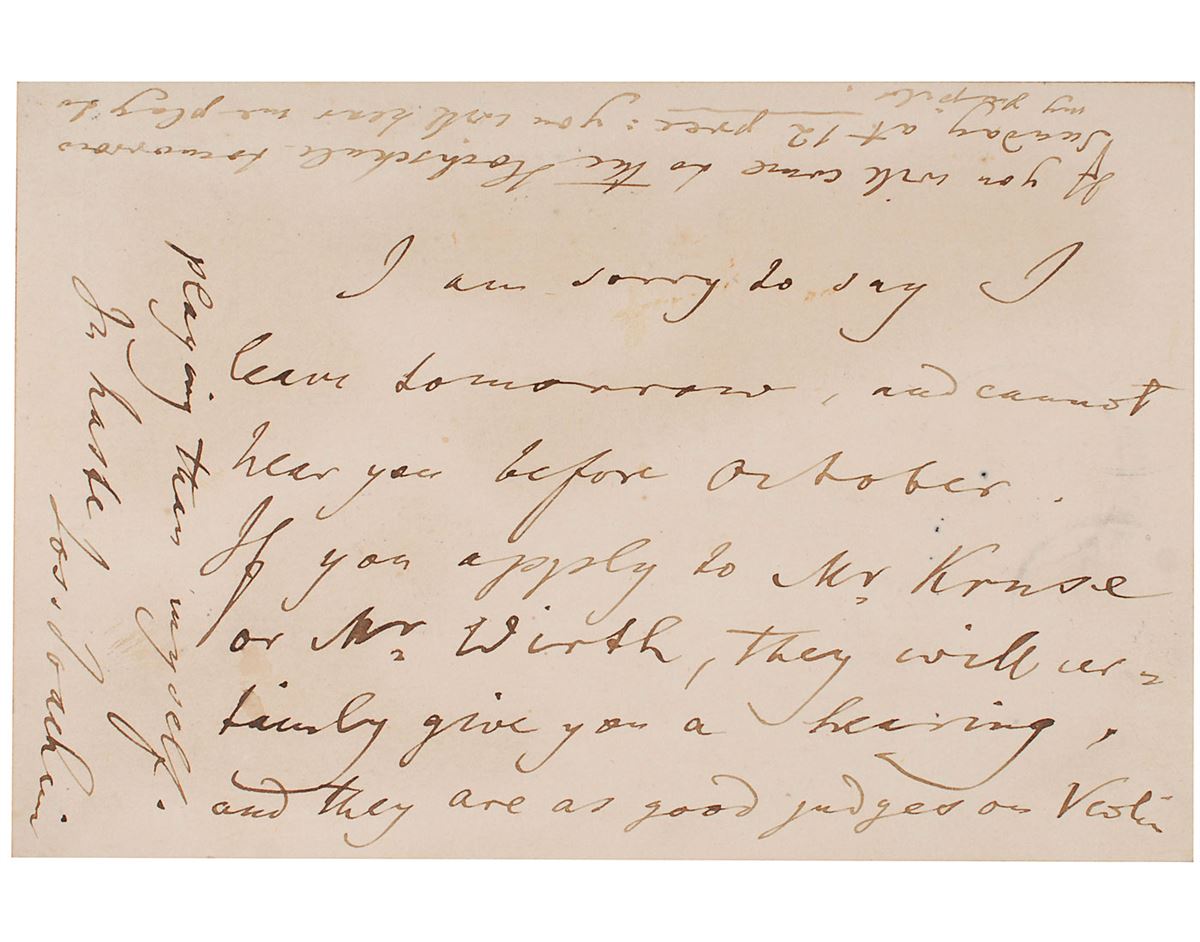 I am sorry to say I
leave tomorrow, and cannot
hear you before October.
If you apply to Mr Kruse
or Mr Wirth, they will cer-
tainly give you a hearing,
and they are as good judges on Violin
playing than myself.
In haste
Jos: Joachim
If you will come to the Hochschule tomorrow
Sunday at 12 precs: you will hear me play to
my pupils